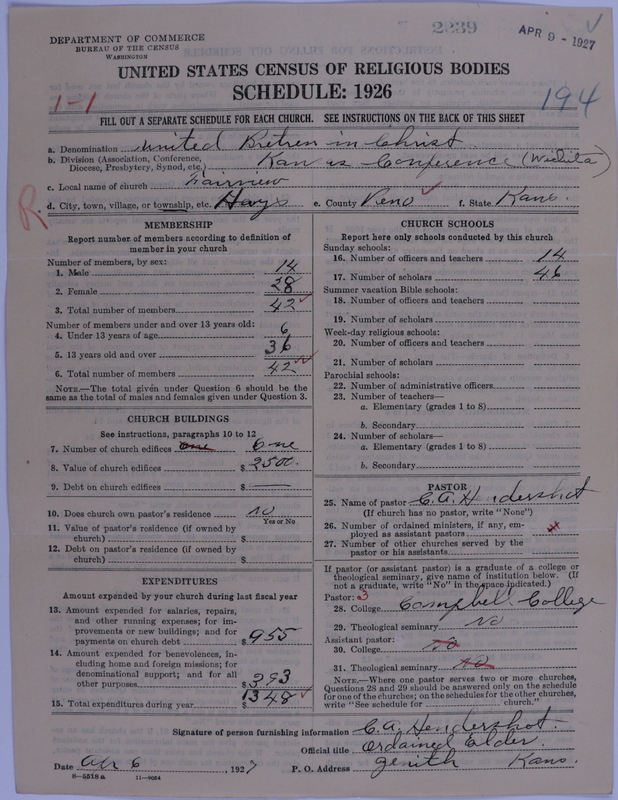 2239
APR 9 - 1927
DEPARTMENT OF COMMERCE
BUREAU OF THE CENSUS
WASHINGTON
UNITED STATES CENSUS OF RELIGIOUS BODIES
SCHEDULE: 1926
1-1
194
FILL OUT A SEPARATE SCHEDULE FOR EACH CHURCH. SEE INSTRUCTIONS ON THE BACK OF THIS SHEET
a. Denomination United Bretren in Christ
b. Division (Association, Conference, Diocese, Presbytery, Synod, etc.) Kan as Conference (Wichita)
c. Local name of church Fairview
R. d. City, town, village, or township, etc. Hays e. County Reno f. State Kans.
MEMBERSHIP
Report number of members according to definition of
member in your church
Number of members, by sex:
1. Male 14
2. Female 28
3. Total number of members 42
Number of members under and over 13 years old:
4. Under 13 years of age 6
5. 13 years old and over 36
6. Total number of members 42
NOTE.—The total given under Question 6 should be the
same as the total of males and females given under Question 3.
CHURCH BUILDINGS
See instructions, paragraphs 10 to 12
7. Number of church edifices one One
8. Value of church edifices $ 2500.
9. Debt on church edifices $ —
10. Does church own pastor's residence no
Yes or No
11. Value of pastor's residence (if owned by
church) $
12. Debt on pastor's residence (if owned by
church) $
EXPENDITURES
Amount expended by your church during last fiscal year
13. Amount expended for salaries, repairs,
and other running expenses; for im-
provements or new buildings; and for
payments on church debt $ 955
14. Amount expended for benevolences, in-
cluding home and foreign missions; for
denominational support; and for all
other purposes $ 393
15. Total expenditures during year $ 1348
CHURCH SCHOOLS
Report here only schools conducted by this church
Sunday schools:
16. Number of officers and teachers 14
17. Number of scholars 46
Summer vacation Bible schools:
18. Number of officers and teachers
19. Number of scholars
Week-day religious schools:
20. Number of officers and teachers
21. Number of scholars
Parochial schools:
22. Number of administrative officers
23. Number of teachers—
a. Elementary (grades 1 to 8)
b. Secondary
24. Number of scholars—
a. Elementary (grades 1 to 8)
b. Secondary
PASTOR
25. Name of pastor C. A. Hendershot
(If church has no pastor, write "None")
26. Number of ordained ministers, if any, em-
ployed as assistant pastors
27. Number of other churches served by the
pastor or his assistants
If pastor (or assistant pastor) is a graduate of a college or
theological seminary, give name of institution below. (If
not a graduate, write "No" in the space indicated.)
Pastor: 3
28. College Campbell College
29. Theological seminary No
Assistant pastor:
30. College No
31. Theological seminary No
NOTE.—Where one pastor serves two or more churches,
Questions 28 and 29 should be answered only on the schedule
for one of the churches; on the schedules for the other churches,
write "See schedule for church."
Signature of person furnishing information C. A. Hendershot.
Official title Ordained Elder.
Date Apr 6, 1927 P. O. Address Zenith Kans.
8—5518 a 11—9054